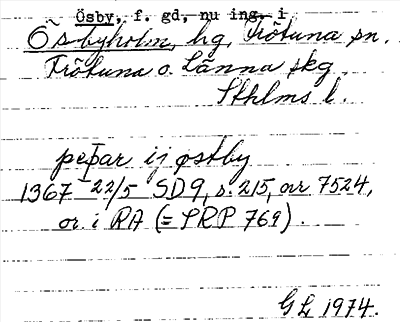 Ösby, f. gd, nu ing. i
Ösbyholm, hg, Frötuna sn.
Frötuna o. Länna skg
Sthlms l.
pet̄ar ij østby
1367 22/5 SD 9, s. 215, nr 7524,
or. i RA (= SRP 769).
G L 1974.